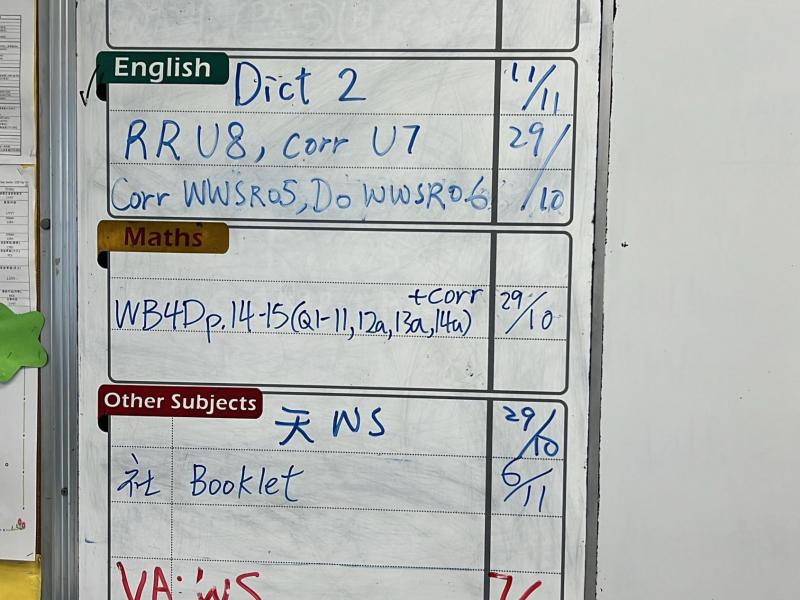 English
Dict 2 11/11
RR U8, Corr U7 29/
Corr WWSR05, Do WWSR06 /10
Maths
+corr
WB4D p.14-15(Q1-11,12a,13a,14a) 29/10
Other Subjects
天 WS 29/10
社 Booklet 6/11
VA: WS 7/